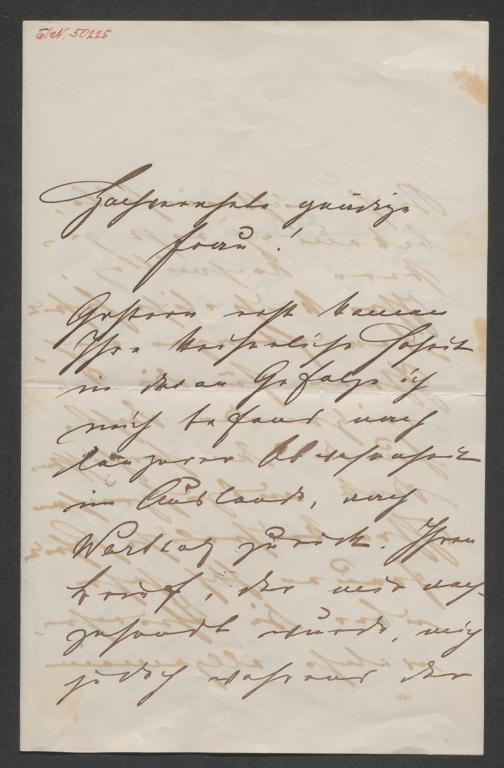 J.N. 50225
Hochverehrte gnädige
Frau!
Gestern erst kamen
Ihre Kaiserliche Hoheit
in deren Gefolge ich
mich befand nach
längerer Abwesenheit
im Auslande, nach
Wartholz zurück. Ihren
Brief, der mir nach-
gesandt wurde, mich
jedoch während der